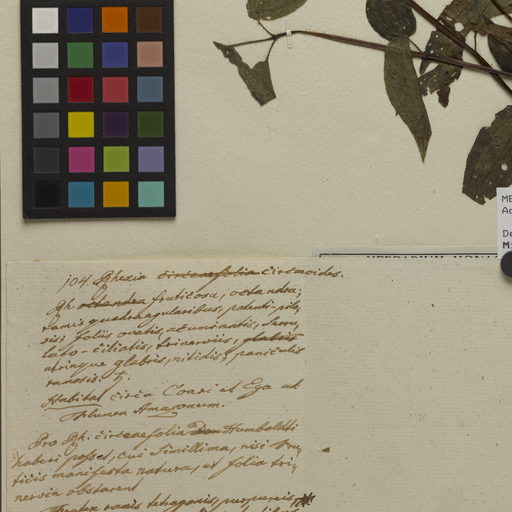 104. Rhexia circeaefolia circaeoides.
Rh. octandra fruticosa, octandra;
ramis quadrangularibus, patenti-pilo-
sis; foliis ovatis, acuminatis, serru-
lato-ciliatis, trinerviis, glabris
utrinque glabris, nitidis; paniculis
ramosis. ♄.
Habitat circa Coari et Ega ad
flumen Amazonum.
Pro Rh. circeaefolia Humboldti
haberi posset, cui simillima, nisi fru-
ticis manifesta natura, et folia tri-
nervia obstarent
ramis tetragonis, purpureis,
HERBARIUM
ME
Ac
De